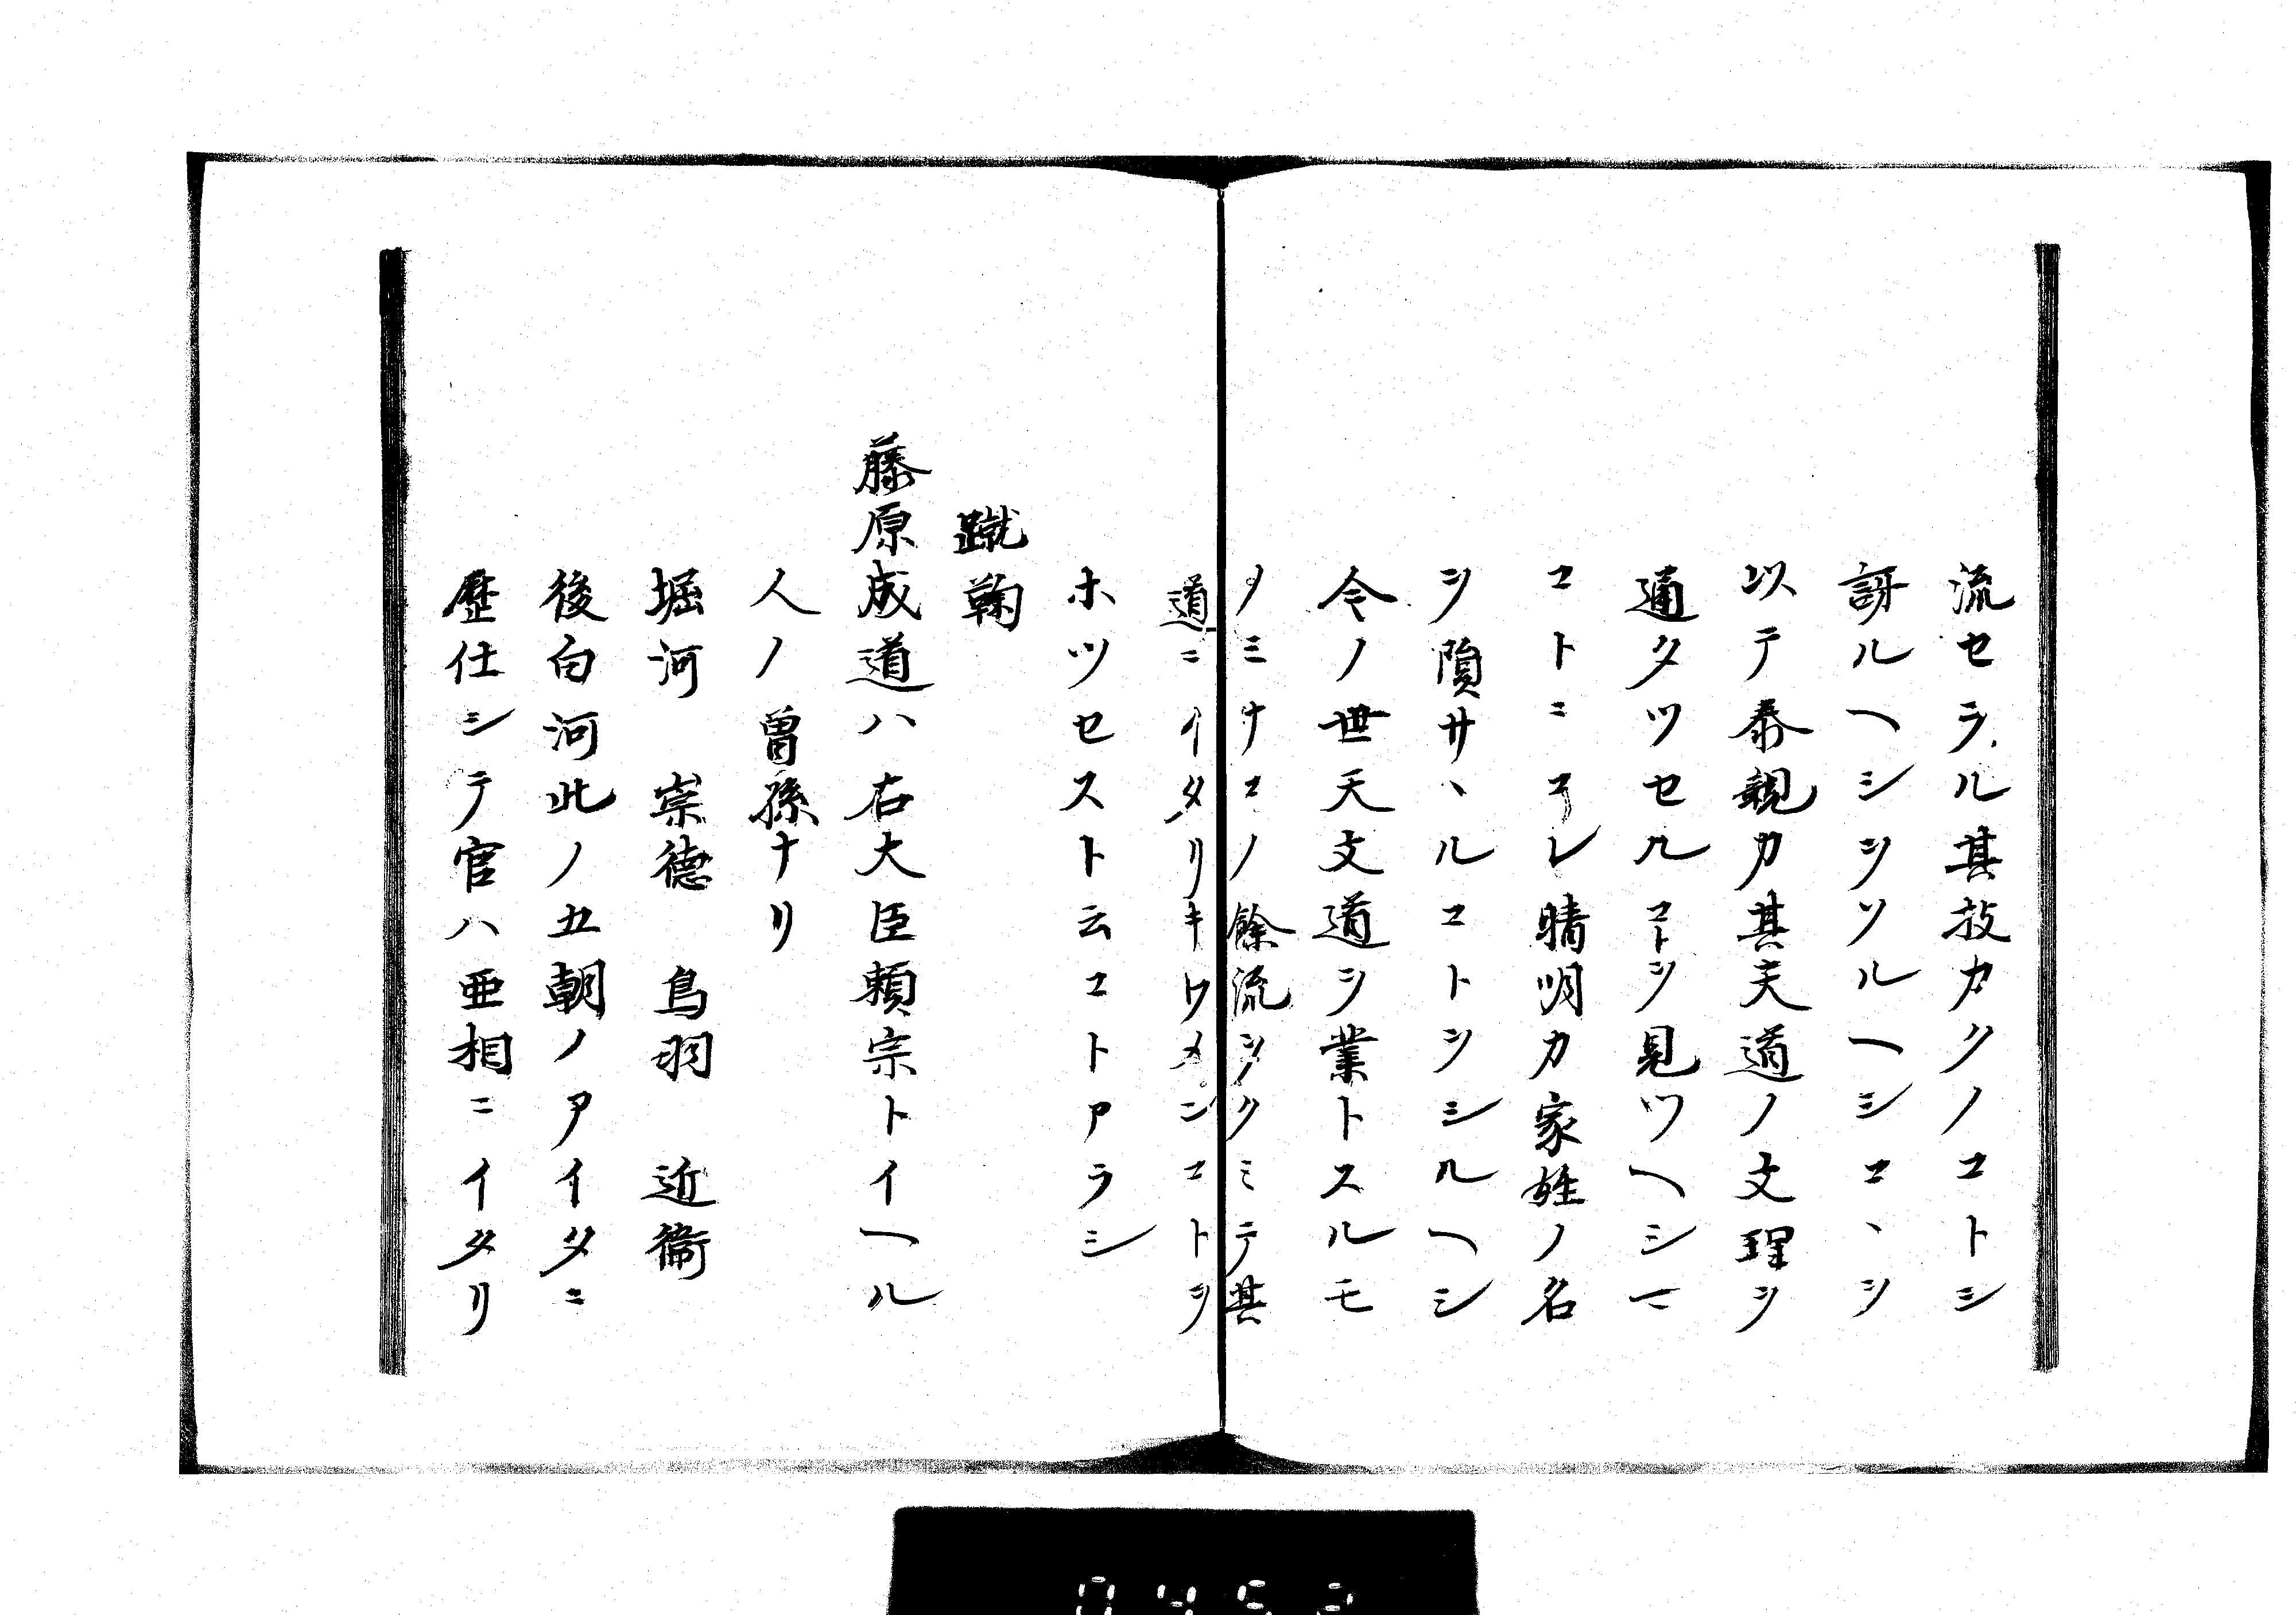 流セラル其技カクノコトシ
訝ルヘシソソルヘシコヽヲ
以テ泰親カ其天道ノ文理ヲ
通タツセルコトヲ見ツヘシマ
コトニコレ晴明カ家姓ノ名
ヲ隕サヽルコトヲシルヘシ
今ノ世天文道ヲ業トスルモ
ノミナコノ餘流ヲクミテ其
道ニイタリキワメンコトヲ
ホツセスト云コトアラシ
蹴鞠
藤原成道ハ右大臣頼宗トイヘル
人ノ曽孫ナリ
堀河 崇徳 鳥羽 近衛
後白河此ノ五朝ノアイタニ
歴仕シテ官ハ亜相ニイタリ
0452